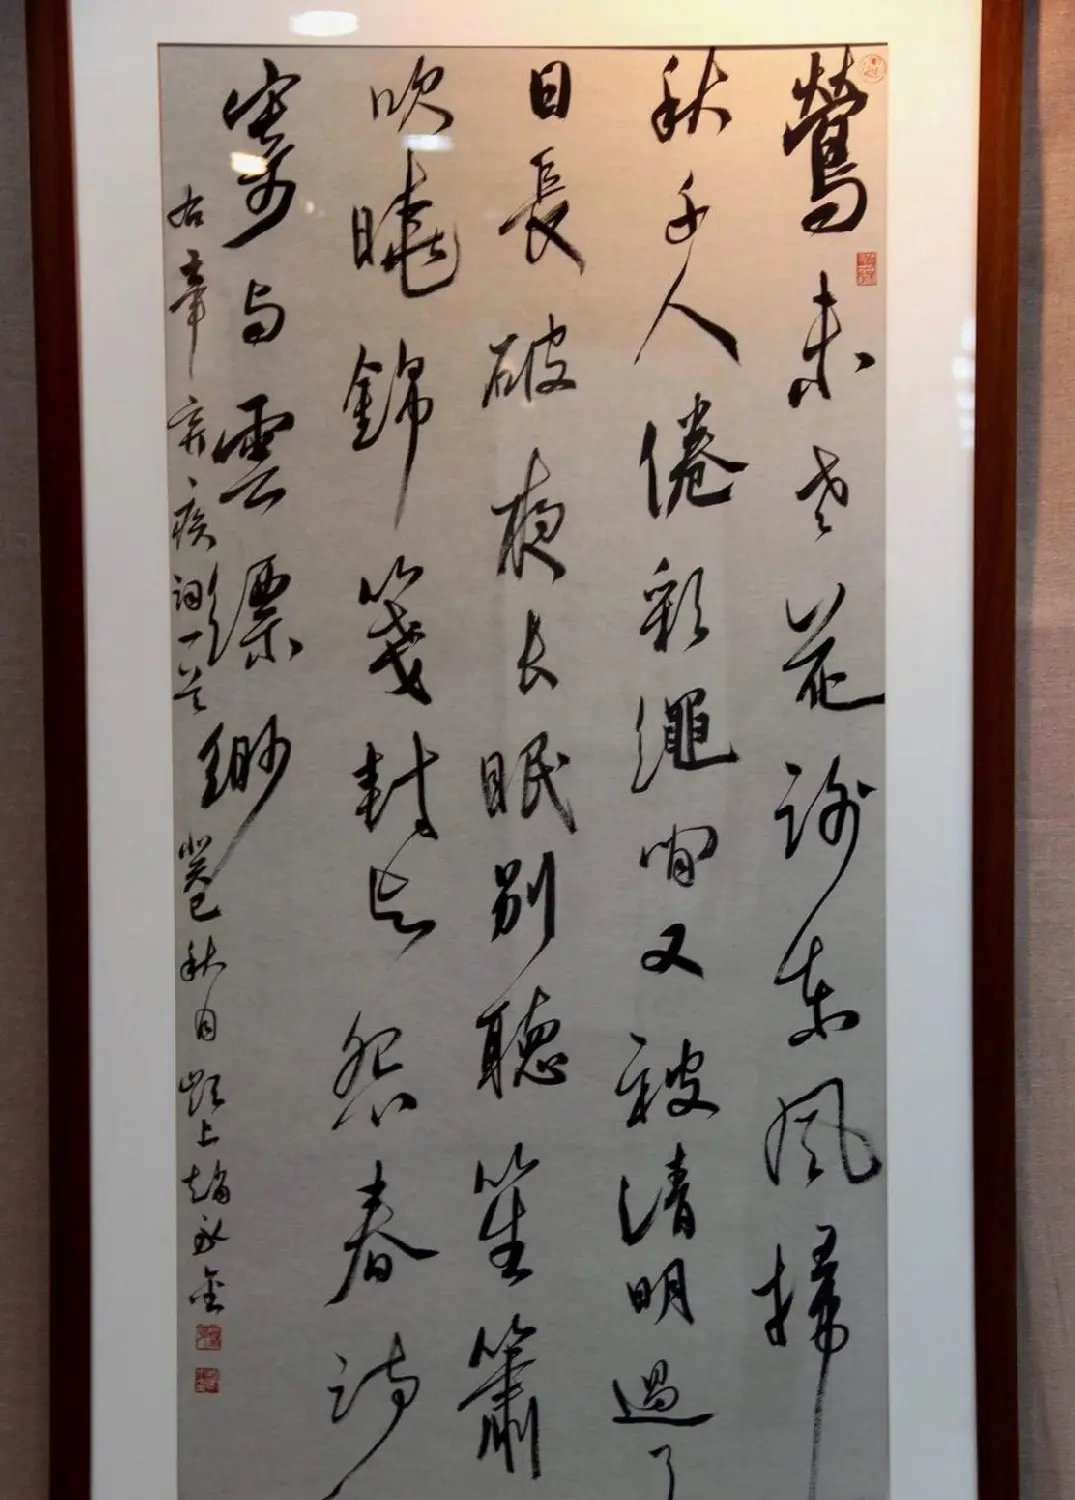 鶯未老花謝東風掃
秋千人倦彩繩閒又被清明過了
日長破夜長眠別聽笙簫
吹曉錦箋封与怨春詩
寄与雲縹緲
右辛弃疾詞一首 癸巳秋月 上趙